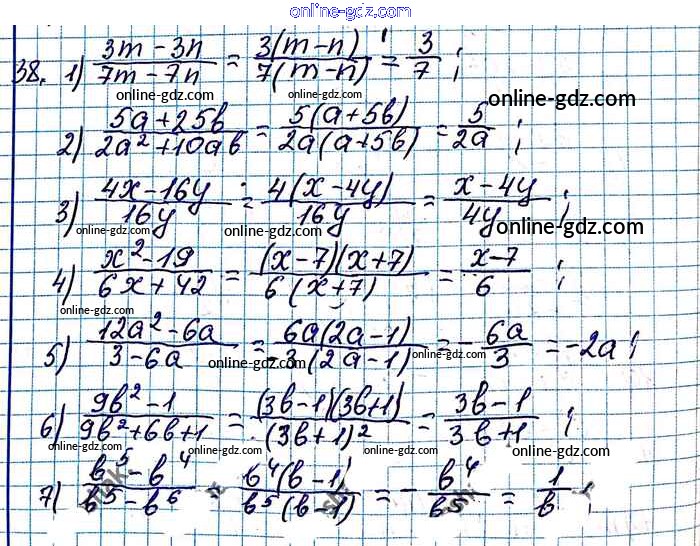 online-gdz.com
38. 1) (3m - 3n)/(7m - 7n) = 3(m - n)/7(m - n) = 3/7 ;
online-gdz.com online-gdz.com online-gdz.com
2) (5a + 25b)/(2a² + 10ab) = 5(a + 5b)/2a(a + 5b) = 5/2a ;
online-gdz.com online-gdz.com
3) (4x - 16y)/16y = 4(x - 4y)/16y = (x - 4y)/4y ;
online-gdz.com online-gdz.com online-gdz.com
4) (x² - 19)/(6x + 42) = (x - 7)(x + 7)/6(x + 7) = (x - 7)/6 ;
online-gdz.com
5) (12a² - 6a)/(3 - 6a) = 6a(2a - 1)/-3(2a - 1) = - 6a/3 = -2a ;
online-gdz.com online-gdz.com online-gdz.com
6) (9b² - 1)/(9b² + 6b + 1) = (3b - 1)(3b + 1)/(3b + 1)² = (3b - 1)/(3b + 1) ;
online-gdz.com online-gdz.com
7) (b⁵ - b⁴)/(b⁵ - b⁶) = b⁴(b - 1)/b⁵(b - 1) = - b⁴/b⁵ = 1/b ;